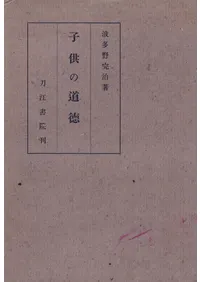 波多野完治著
子供の道徳
刀江書院刊